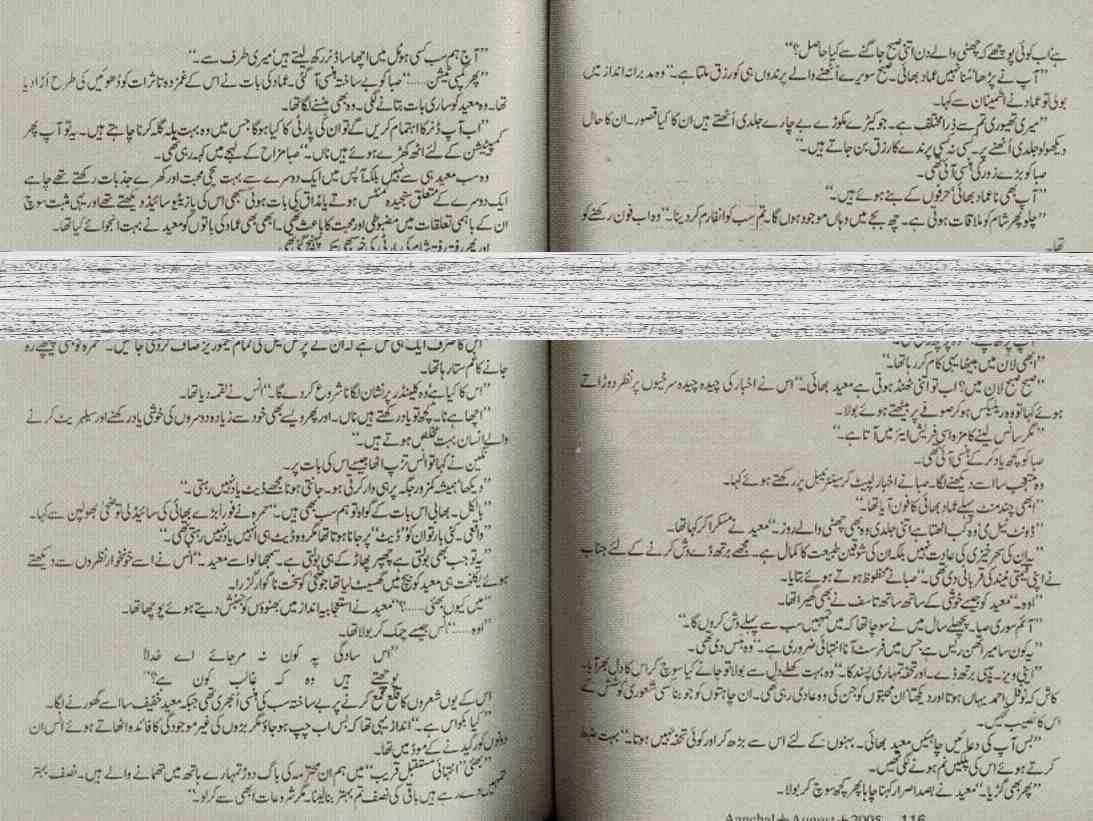 ہے اب کوئی پوچھے کہ چھٹی والے دن اتنی صبح جاگنے سے کیا حاصل؟"
"آپ نے پڑھا سنا نہیں عماد بھائی۔ صبح سویرے اٹھنے والے پرندوں ہی کو رزق ملتا ہے۔" وہ مدبرانہ انداز میں
بولی تو عماد نے اطمینان سے کہا۔
"میری تھیوری تم سے ذرا مختلف ہے۔ جو کیڑے مکوڑے بے چارے جلدی اُٹھتے ہیں ان کا کیا قصور۔ ان کا حال
دیکھو لو جلدی اُٹھنے پر۔ کسی نہ کسی پرندے کا رزق بن جاتے ہیں۔"
صبا کو بڑے زور کی ہنسی آئی تھی۔
"آپ بھی نا عماد بھائی! حرفوں کے بنے ہوئے ہیں۔"
"چلو پھر شام کو ملاقات ہوتی ہے۔ چھ بجے میں وہاں موجود ہوں گا۔ تم سب کو انفارم کر دینا۔" وہ اب فون رکھنے کو
تھا۔
"ابھی لان میں بیٹھا یہی کام کر رہا تھا۔"
"صبح صبح لان میں؟ اب تو اتنی ٹھنڈ ہوتی ہے معید بھائی۔" اس نے اخبار کی چیدہ چیدہ سرخیوں پر نظر دوڑاتے
ہوئے کہا تو وہ ریلیکس ہو کر صوفے پر بیٹھتے ہوئے بولا۔
"مگر سانس لینے کا مزہ اسی فریش ایئر میں آتا ہے۔"
صبا کو کچھ یاد کر کے ہنسی آئی تھی۔
وہ متعجب سا اسے دیکھنے لگا۔ صبا نے اخبار لپیٹ کر سینٹر ٹیبل پر رکھتے ہوئے کہا۔
"ابھی چند منٹ پہلے عماد بھائی کا فون آیا تھا۔"
"ڈونٹ ٹیل می! وہ کب اٹھتا ہے اتنی جلدی وہ بھی چھٹی والے روز۔" معید نے مسکرا کر کہا تھا۔
"یہ ان کی سحر خیزی کی عادت نہیں بلکہ ان کی شوقین طبیعت کا کمال ہے۔ مجھے برتھ ڈے وش کرنے کے لئے جناب
نے اپنی قیمتی نیند کی قربانی دی تھی۔" صبا نے محظوظ ہوتے ہوئے بتایا۔
"اوہ۔" معید کو جیسے خوشی کے ساتھ ساتھ تاسف نے بھی گھیرا تھا۔
"آئم سوری صبا۔ پچھلے سال میں نے سوچا تھا کہ میں تمہیں سب سے پہلے وش کروں گا۔"
"یہ کون سا میراتھن ریس ہے جس میں فرسٹ آنا انتہائی ضروری ہے۔" وہ ہنس دی تھی۔
"اینی ویز۔ ہیپی برتھ ڈے۔ اور تحفہ تمہاری پسند کا۔" وہ بہت کھلے دل سے بولا تو جانے کیا سوچ کر اس کا دل بھر آیا۔
کاش کہ نوفل احمد یہاں ہوتا اور دیکھتا ان محبتوں کو جن کی وہ عادی رہی تھی۔ ان چاہتوں کو جو بنا کسی شعوری کوشش کے
اس کا نصیب تھیں۔
"بس آپ کی دعائیں چاہئیں معید بھائی۔ بہنوں کے لئے اس سے بڑھ کر اور کوئی تحفہ نہیں ہوتا۔" بہت ضبط
کرتے ہوئے اس کی پلکیں نم ہونے لگی تھیں۔
"پھر بھی گڑیا۔" معید نے بصد اصرار کہنا چاہا پھر کچھ سوچ کر بولا۔
Aanchal August 2005 116
"آج ہم سب کسی ہوٹل میں اچھا سا ڈنر رکھ لیتے ہیں میری طرف سے۔"
"پھر کمپی ٹیشن......" صبا کو بے ساختہ ہنسی آ گئی۔ عماد کی بات نے اس کے غمزدہ تاثرات کو دھوئیں کی طرح اُڑا دیا
تھا۔ وہ معید کو ساری بات بتانے لگی۔ وہ بھی ہنسنے لگا تھا۔
"اب آپ ڈنر کا اہتمام کریں گے تو ان کی پارٹی کا کیا ہوگا جس میں وہ بہت ہلہ گلہ کرنا چاہتے ہیں۔ یہ تو آپ پھر
کمپیٹیشن کے لئے اٹھ کھڑے ہوئے ہیں ناں۔" صبا مزاح کے لہجے میں کہہ رہی تھی۔
وہ سب معید ہی سے نہیں بلکہ آپس میں ایک دوسرے سے بہت سچی محبت اور کھرے جذبات رکھتے تھے چاہے
ایک دوسرے کے متعلق سنجیدہ کمنٹس ہوتے یا مذاق کی بات ہوتی سبھی اس کی پازیٹو سائیڈ دیکھتے تھے اور یہی مثبت سوچ
ان کے باہمی تعلقات میں مضبوطی اور محبت کا باعث تھی۔ ابھی بھی عماد کی باتوں کو معید نے بہت انجوائے کیا تھا۔
جانے کا غم ستا رہا تھا۔
"اس کا کیا ہے وہ کیلنڈر پر نشان لگانا شروع کر دے گا۔" انس نے لقمہ دیا تھا۔
"اچھا ہے نا۔ کچھ تو یاد رکھتے ہیں ناں۔ اور پھر ویسے بھی خود سے زیادہ دوسروں کی خوشی یاد رکھنے اور سیلیبریٹ کرنے
والے انسان بہت مخلص ہوتے ہیں۔"
نگین نے کہا تو انس تڑپ اٹھا جیسے اس کی بات پر۔
"دیکھا ہمیشہ کمزور جگہ پر ہی وار کرتی ہو۔ جانتی ہو نا مجھے ڈیٹ یاد نہیں رہتی۔"
"بالکل۔ بھائی اس بات کے گواہ تو ہم سب بھی ہیں۔" حمرہ نے فوراً بڑے بھائی کی سائیڈ لی تو ضحیٰ بھولپن سے کہا۔
"واقعی۔ کئی بار تو ان کو "ڈیٹ" پر جانا ہوتا تھا مگر وہ ڈیٹ ہی انہیں یاد نہیں رہتی تھی۔"
"یہ تو جب بھی بولتی ہے چھپر پھاڑ کے ہی بولتی ہے۔ سمجھا لو اسے معید۔" انس نے اسے خونخوار نظروں سے دیکھتے
ہوئے یکلخت ہی معید کو بیچ میں گھسیٹ لیا تھا جو ضحیٰ کو سخت ناگوار گزرا۔
"میں کیوں بھئی......؟" معید نے استعجابیہ انداز میں بھنوؤں کو جنبش دیتے ہوئے پوچھا تھا۔
"اوہ......" انس جیسے چہک کر بولا تھا۔
"اس سادگی پہ کون نہ مر جائے اے خدا!
پوچھتے ہیں وہ کہ غالب کون ہے؟"
اس کے یوں شعروں کا قلع قمع کرنے پر بے ساختہ سب کی ہنسی ابھری تھی جبکہ معید خفیف سا اسے گھورنے لگا۔
"کیا بکواس ہے۔" انداز یہی تھا کہ بس اب چپ ہو جاؤ مگر بڑوں کی غیر موجودگی کا فائدہ اٹھاتے ہوئے انس ان
دونوں کو رگیدنے کے موڈ میں تھا۔
"بھئی "انتہائی مستقبل قریب" میں ہم ان محترمہ کی باگ دوڑ تمہارے ہاتھ میں تھمانے والے ہیں۔ نصف بہتر
تمہیں دے رہے ہیں باقی کی نصف تم بہتر بنا لینا۔ مگر شروعات ابھی سے کر لو۔"